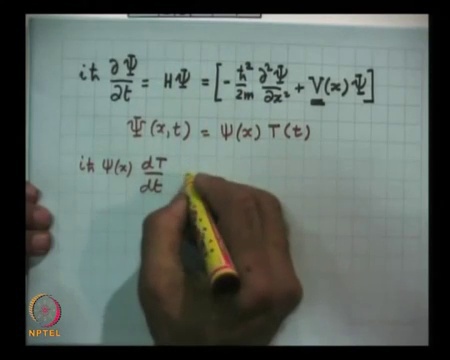 iħ ∂Ψ/∂t = HΨ = [ - ħ²/2m ∂²Ψ/∂x² + V(x)Ψ ]
Ψ(x,t) = ψ(x) T(t)
iħ ψ(x) dT/dt
NPTEL